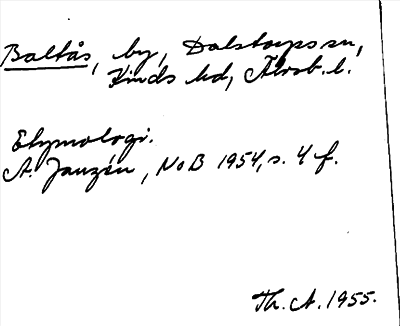 Baltås, by, Dalstorps sn,
Kinds hd, Älvsb. l.
Etymologi.
A. Janzén, NoB 1954, s. 4 f.
Th. A. 1955.